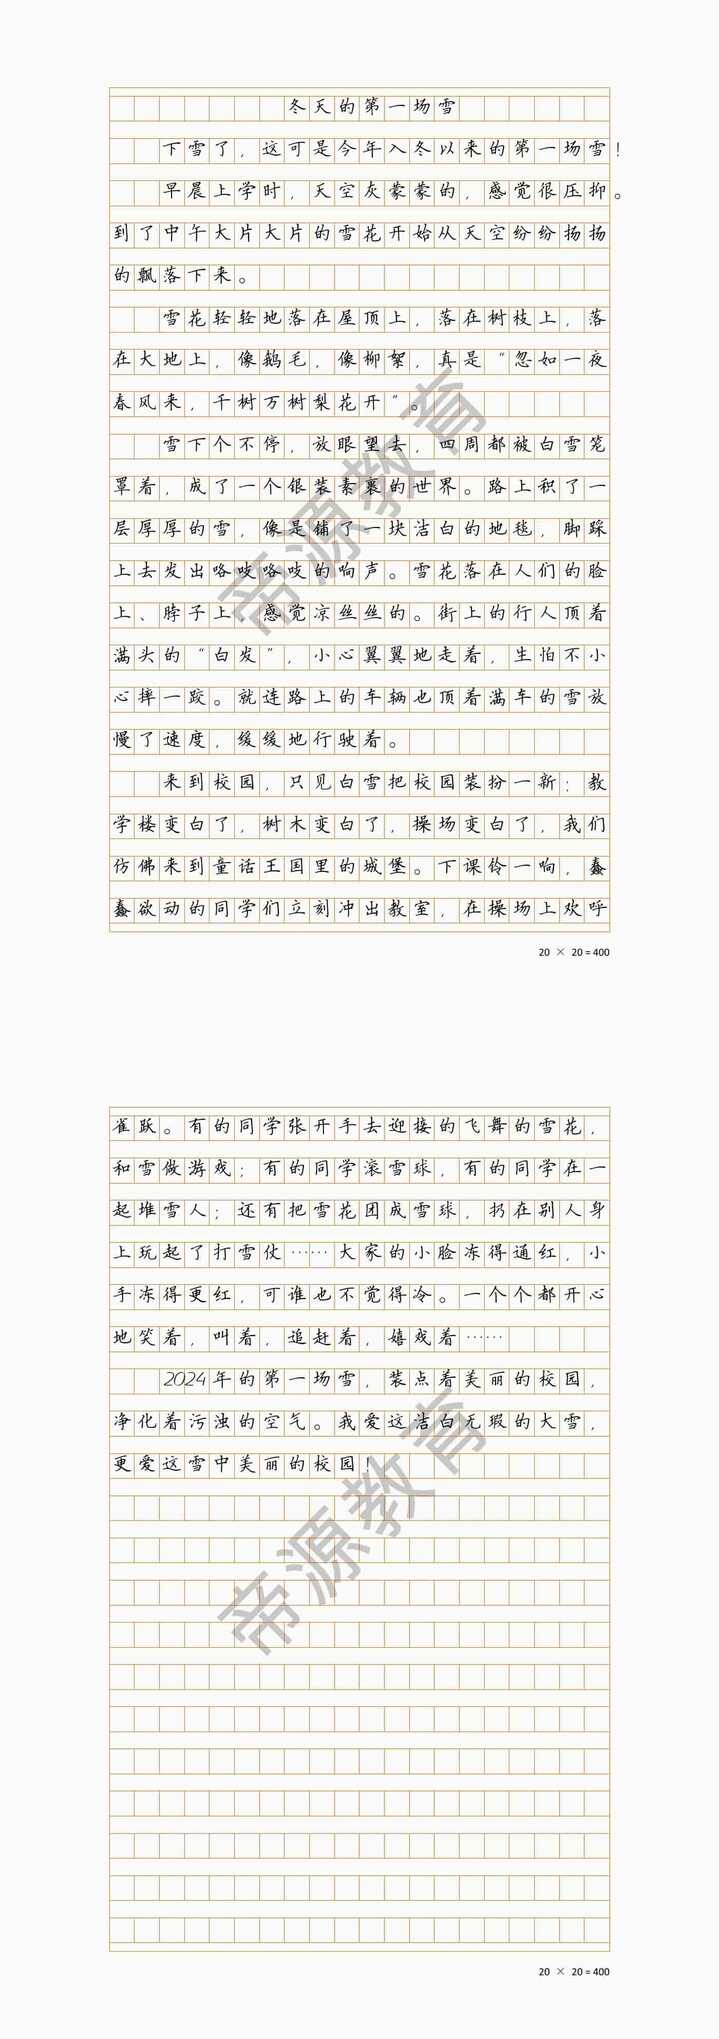 冬天的第一场雪
下雪了，这可是今年入冬以来的第一场雪！
早晨上学时，天空灰蒙蒙的，感觉很压抑。
到了中午大片大片的雪花开始从天空纷纷扬扬
的飘落下来。
雪花轻轻地落在屋顶上，落在树枝上，落
在大地上，像鹅毛，像柳絮，真是“忽如一夜
春风来，千树万树梨花开”。
雪下个不停，放眼望去，四周都被白雪笼
罩着，成了一个银装素裹的世界。路上积了一
层厚厚的雪，像是铺了一块洁白的地毯，脚踩
上去发出咯吱咯吱的响声。雪花落在人们的脸
上、脖子上，感觉凉丝丝的。街上的行人顶着
满头的“白发”，小心翼翼地走着，生怕不小
心摔一跤。就连路上的车辆也顶着满车的雪放
慢了速度，缓缓地行驶着。
来到校园，只见白雪把校园装扮一新：教
学楼变白了，树木变白了，操场变白了，我们
仿佛来到童话王国里的城堡。下课铃一响，蠢
蠢欲动的同学们立刻冲出教室，在操场上欢呼
20 × 20 = 400
雀跃。有的同学张开手去迎接的飞舞的雪花，
和雪做游戏；有的同学滚雪球，有的同学在一
起堆雪人；还有把雪花团成雪球，扔在别人身
上玩起了打雪仗……大家的小脸冻得通红，小
手冻得更红，可谁也不觉得冷。一个个都开心
地笑着，叫着，追赶着，嬉戏着……
2024年的第一场雪，装点着美丽的校园，
净化着污浊的空气。我爱这洁白无瑕的大雪，
更爱这雪中美丽的校园！
20 × 20 = 400
帝源教育
帝源教育